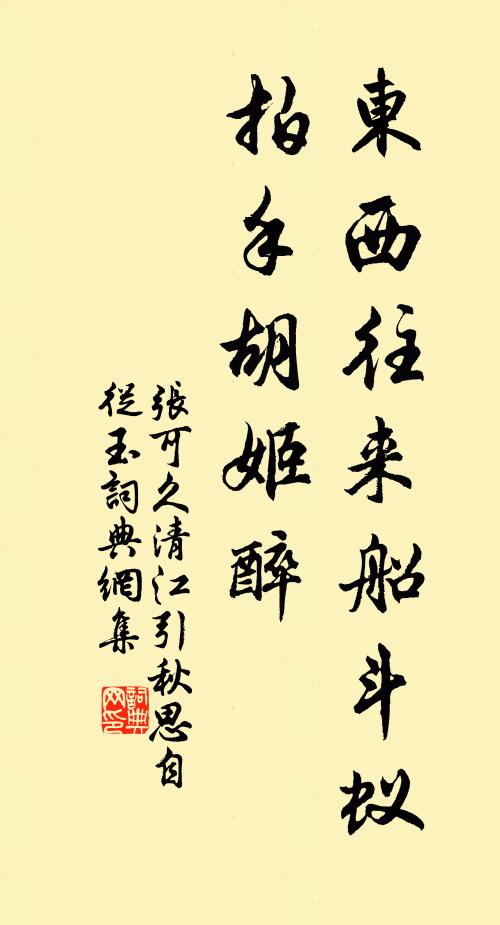 東西往来船斗蚁
拍手胡姬醉
張可久清江引秋思自
從玉詞典網集
詞典
网印